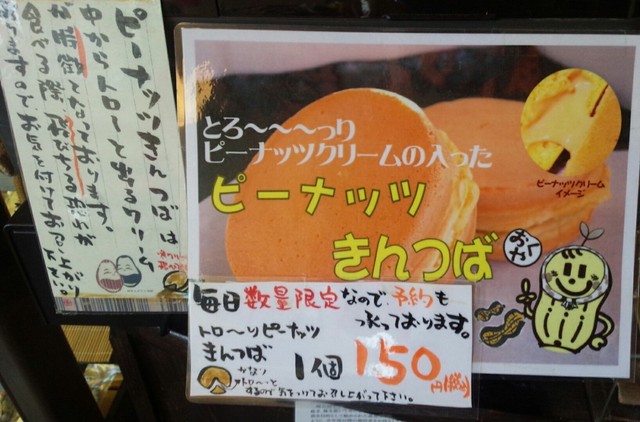 ピーナッツきんつばは
中からトローと出るクリーム
が特徴となっております。
食べる際、飛びちる恐れが
ありますのでお気を付けてお召し上がり下さい。
とろ〜〜〜っり
ピーナッツクリームの入った
ピーナッツ
きんつば
ピーナッツクリーム
イメージ
おくや
毎日数量限定なので、予約も
うけたまわっております。
トロ〜リピーナッツ
きんつば
1個 150円
かなり
トロ〜っと
するので気をつけてお召し上がって下さい。